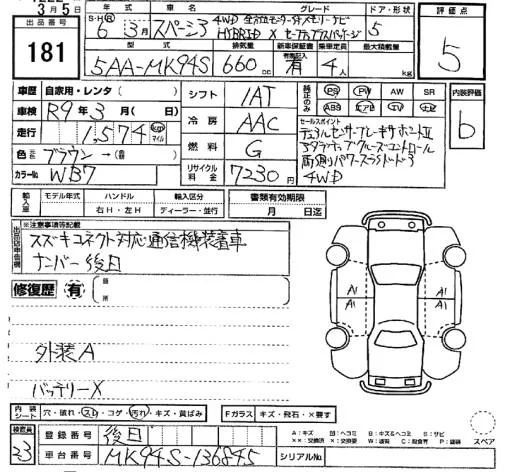 3月5日
出品番号
181
年式 車名 グレード ドア・形状 評価点
S・H・R 6年3月 スペーシア 4WD 全方位モニター付メモリーナビ
HYBRID X セーフティプラスパッケージ 5 5
型式 排気量 新車保証書 乗車定員 最大積載量
5AA-MK94S 660cc 有 4人 kg
車歴 自家用・レンタ( )
車検 R9年3月( 日)
走行 1,574 km マイル
色 元色 ブラウン→(替 )
カラーNo. WB7
シフト IAT
冷房 AAC
燃料 G
リサイクル料金 7230円
純正のみ PS PW AW SR
ABS エアB TV ナビ
内装評価
b
セールスポイント
デュアルセンサーブレーキサポートII
アダプティブクルーズコントロール
両側パワースライドドア
4WD
輸入車 モデル年式 ハンドル 輸入区分 書類有効期限
右H・左H ディーラー・並行 月 日迄
出品店申告欄 ※注意事項等記載
スズキコネクト対応通信機装着車
ナンバー後日
修復歴 有 (箇所 )
外装A
バッテリーX
A1 A1
A1 A1
内装シート 穴・破れ・スレ・コゲ・汚れ・キズ・黄ばみ Fガラス キズ・飛石・×要す
検査員
23
登録番号 後日
車台番号 MK94S-136845 シリアルNo.
A:キズ 凹:ヘコミ B:キズ&ヘコミ S:サビ
××:交換済 ×:要交換 W:補修 C:腐食 P:塗装 スペア